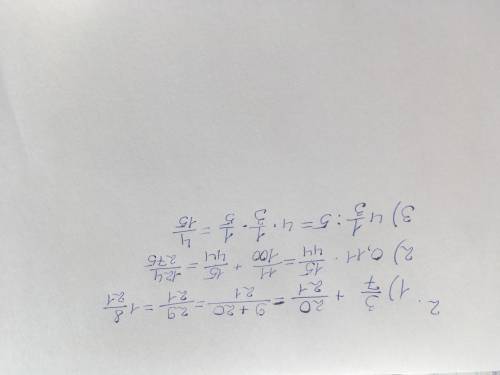 2.
1) 3/7 + 20/21 = 9+20/21 = 29/21 = 1 8/21
2) 0,11 · 15/44 = 11/100 + 15/44 = 124/275
3) 4 1/3 : 5 = 4 · 1/3 · 1/5 = 4/15